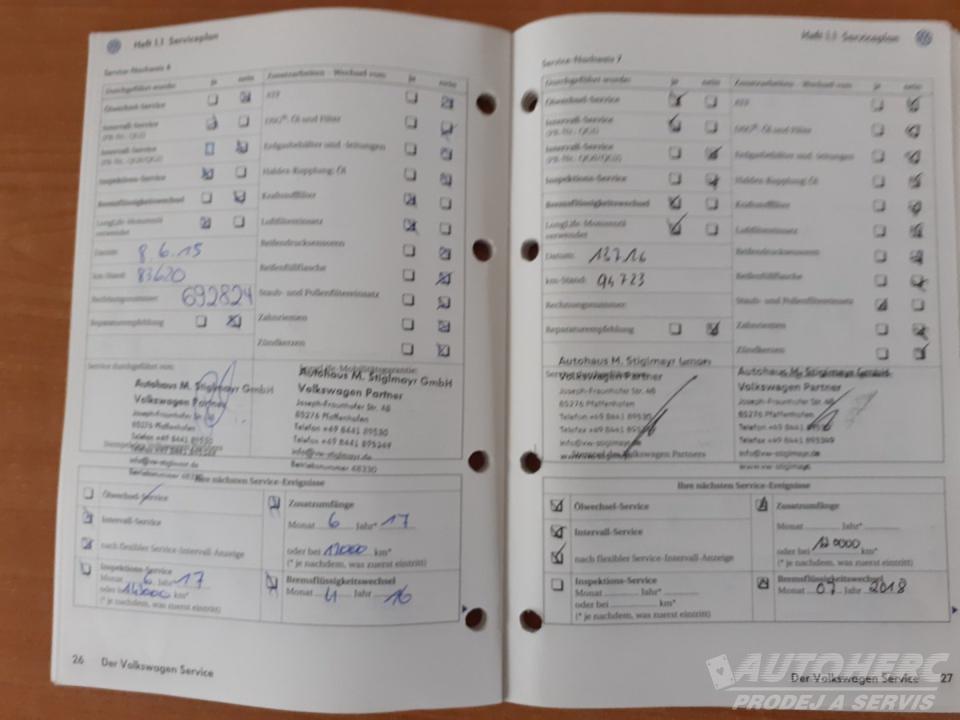 Heft 1.1 Serviceplan
Service-Nachweis 6
Durchgeführt wurde: ja nein Zusatzarbeiten - Wechsel von: ja nein
Ölwechsel-Service ATF
Intervall-Service DSG®: Öl und Filter
(PR-Nr.: QG1)
Intervall-Service Erdgasbehälter und -leitungen
(PR-Nr.: QG0/QG2)
Inspektions-Service Haldex-Kupplung: Öl
Bremsflüssigkeitswechsel Kraftstofffilter
LongLife-Motorenöl Luftfiltereinsatz
verwendet
Reifendrucksensoren
Datum: 8.6.15
Reifenfüllflasche
km-Stand: 83620
Staub- und Pollenfiltereinsatz
Rechnungsnummer: 692824
Zahnriemen
Reparaturempfehlung
Zündkerzen
Service durchgeführt von:
Autohaus M. Stiglmayr GmbH
Volkswagen Partner
Joseph-Fraunhofer Str. 48
85276 Pfaffenhofen
Telefon +49 8441 89530
Telefax +49 8441 895349
info@vw-stiglmayr.de
Betriebsnummer 48330
Mobilitätsgarantie:
Autohaus M. Stiglmayr GmbH
Volkswagen Partner
Joseph-Fraunhofer Str. 48
85276 Pfaffenhofen
Telefon +49 8441 89530
Telefax +49 8441 895349
info@vw-stiglmayr.de
Betriebsnummer 48330
Ihre nächsten Service-Ereignisse
Ölwechsel-Service Zusatzumfänge
Intervall-Service Monat 6 Jahr* 17
nach flexibler Service-Intervall-Anzeige oder bei km*
(* je nachdem, was zuerst eintritt)
Inspektions-Service Bremsflüssigkeitswechsel
Monat 6 Jahr* 17 Monat 4 Jahr 16
oder bei km*
(* je nachdem, was zuerst eintritt)
26 Der Volkswagen Service
Heft 1.1 Serviceplan
Service-Nachweis 7
Durchgeführt wurde: ja nein Zusatzarbeiten - Wechsel von: ja nein
Ölwechsel-Service ATF
Intervall-Service DSG®: Öl und Filter
(PR-Nr.: QG1)
Intervall-Service Erdgasbehälter und -leitungen
(PR-Nr.: QG0/QG2)
Inspektions-Service Haldex-Kupplung: Öl
Bremsflüssigkeitswechsel Kraftstofffilter
LongLife-Motorenöl Luftfiltereinsatz
verwendet
Reifendrucksensoren
Datum: 13.7.16
Reifenfüllflasche
km-Stand: 94723
Staub- und Pollenfiltereinsatz
Rechnungsnummer:
Zahnriemen
Reparaturempfehlung
Zündkerzen
Autohaus M. Stiglmayr GmbH
Volkswagen Partner
Joseph-Fraunhofer Str. 48
85276 Pfaffenhofen
Telefon +49 8441 89530
Telefax +49 8441 895349
info@vw-stiglmayr.de
www.vw-stiglmayr.de
Stempel des Volkswagen Partners
Autohaus M. Stiglmayr GmbH
Volkswagen Partner
Joseph-Fraunhofer Str. 48
85276 Pfaffenhofen
Telefon +49 8441 89530
Telefax +49 8441 895349
info@vw-stiglmayr.de
www.vw-stiglmayr.de
Ihre nächsten Service-Ereignisse
Ölwechsel-Service Zusatzumfänge
Intervall-Service Monat Jahr*
nach flexibler Service-Intervall-Anzeige oder bei 120000 km*
(* je nachdem, was zuerst eintritt)
Inspektions-Service Bremsflüssigkeitswechsel
Monat Jahr* Monat 07 Jahr 2018
oder bei km*
(* je nachdem, was zuerst eintritt)
Der Volkswagen Service 27
AUTOHERC
PRODEJ A SERVIS